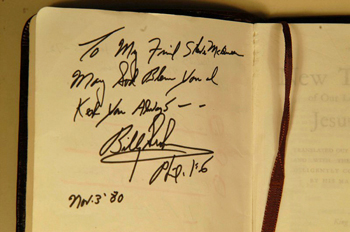 To My Friend Steve McQueen
May God Bless You and
Keep You Always - -
Billy Graham
Phil. 1:6
Nov. 3 '80
New T
of Our
Jesu